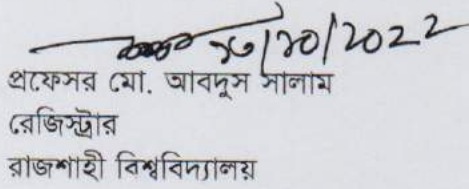 ১৬/১০/2022
প্রফেসর মো. আবদুস সালাম
রেজিস্ট্রার
রাজশাহী বিশ্ববিদ্যালয়